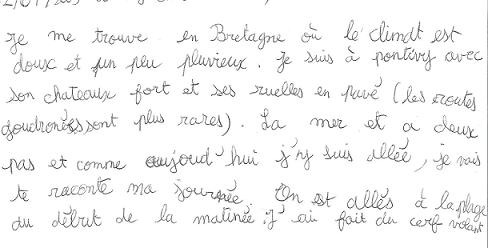 je me trouve en Bretagne où le climat est
doux et un peu pluvieux. je suis à pontivy avec
son chateaux fort et ses ruelles en pavé (les routes
goudronées sont plus rares). La mer et a deux
pas et comme aujourd'hui j'y suis allée, je vais
te raconte ma journée. On est allés à la plage
au début de la matinée. J'ai fait du cerf volant